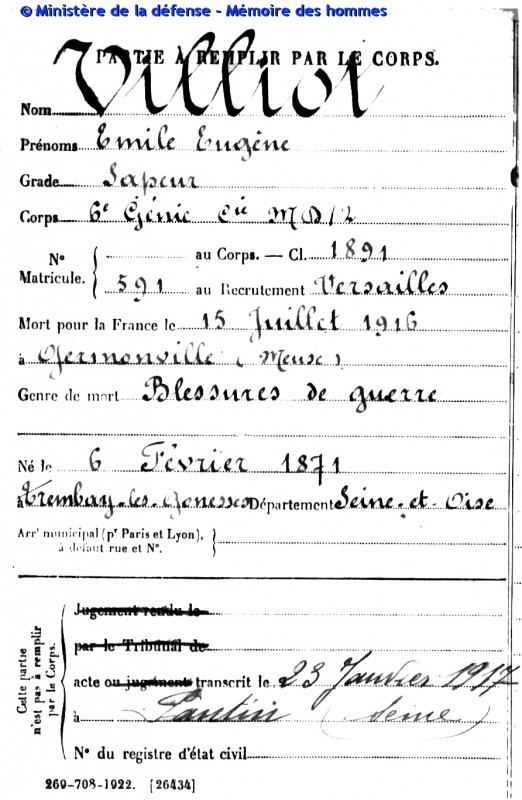 © Ministère de la défense - Mémoire des hommes
PARTIE À REMPLIR PAR LE CORPS.
Nom Villiot
Prénoms Emile Eugène
Grade Sapeur
Corps 6e Génie Cie M D/2
N° Matricule. { au Corps. — Cl. 1891
591 au Recrutement Versailles
Mort pour la France le 15 Juillet 1916
à Germonville (Meuse)
Genre de mort Blessures de guerre
Né le 6 Février 1871
à Trembay-les-Gonesses Département Seine-et-Oise
Arrt municipal (pr Paris et Lyon), }
à défaut rue et N°.
Cette partie n'est pas à remplir par le Corps.
Jugement rendu le
par le Tribunal de
acte ou jugement transcrit le 23 Janvier 1917
à Pantin (Seine)
N° du registre d'état civil
269-708-1922. [26434]